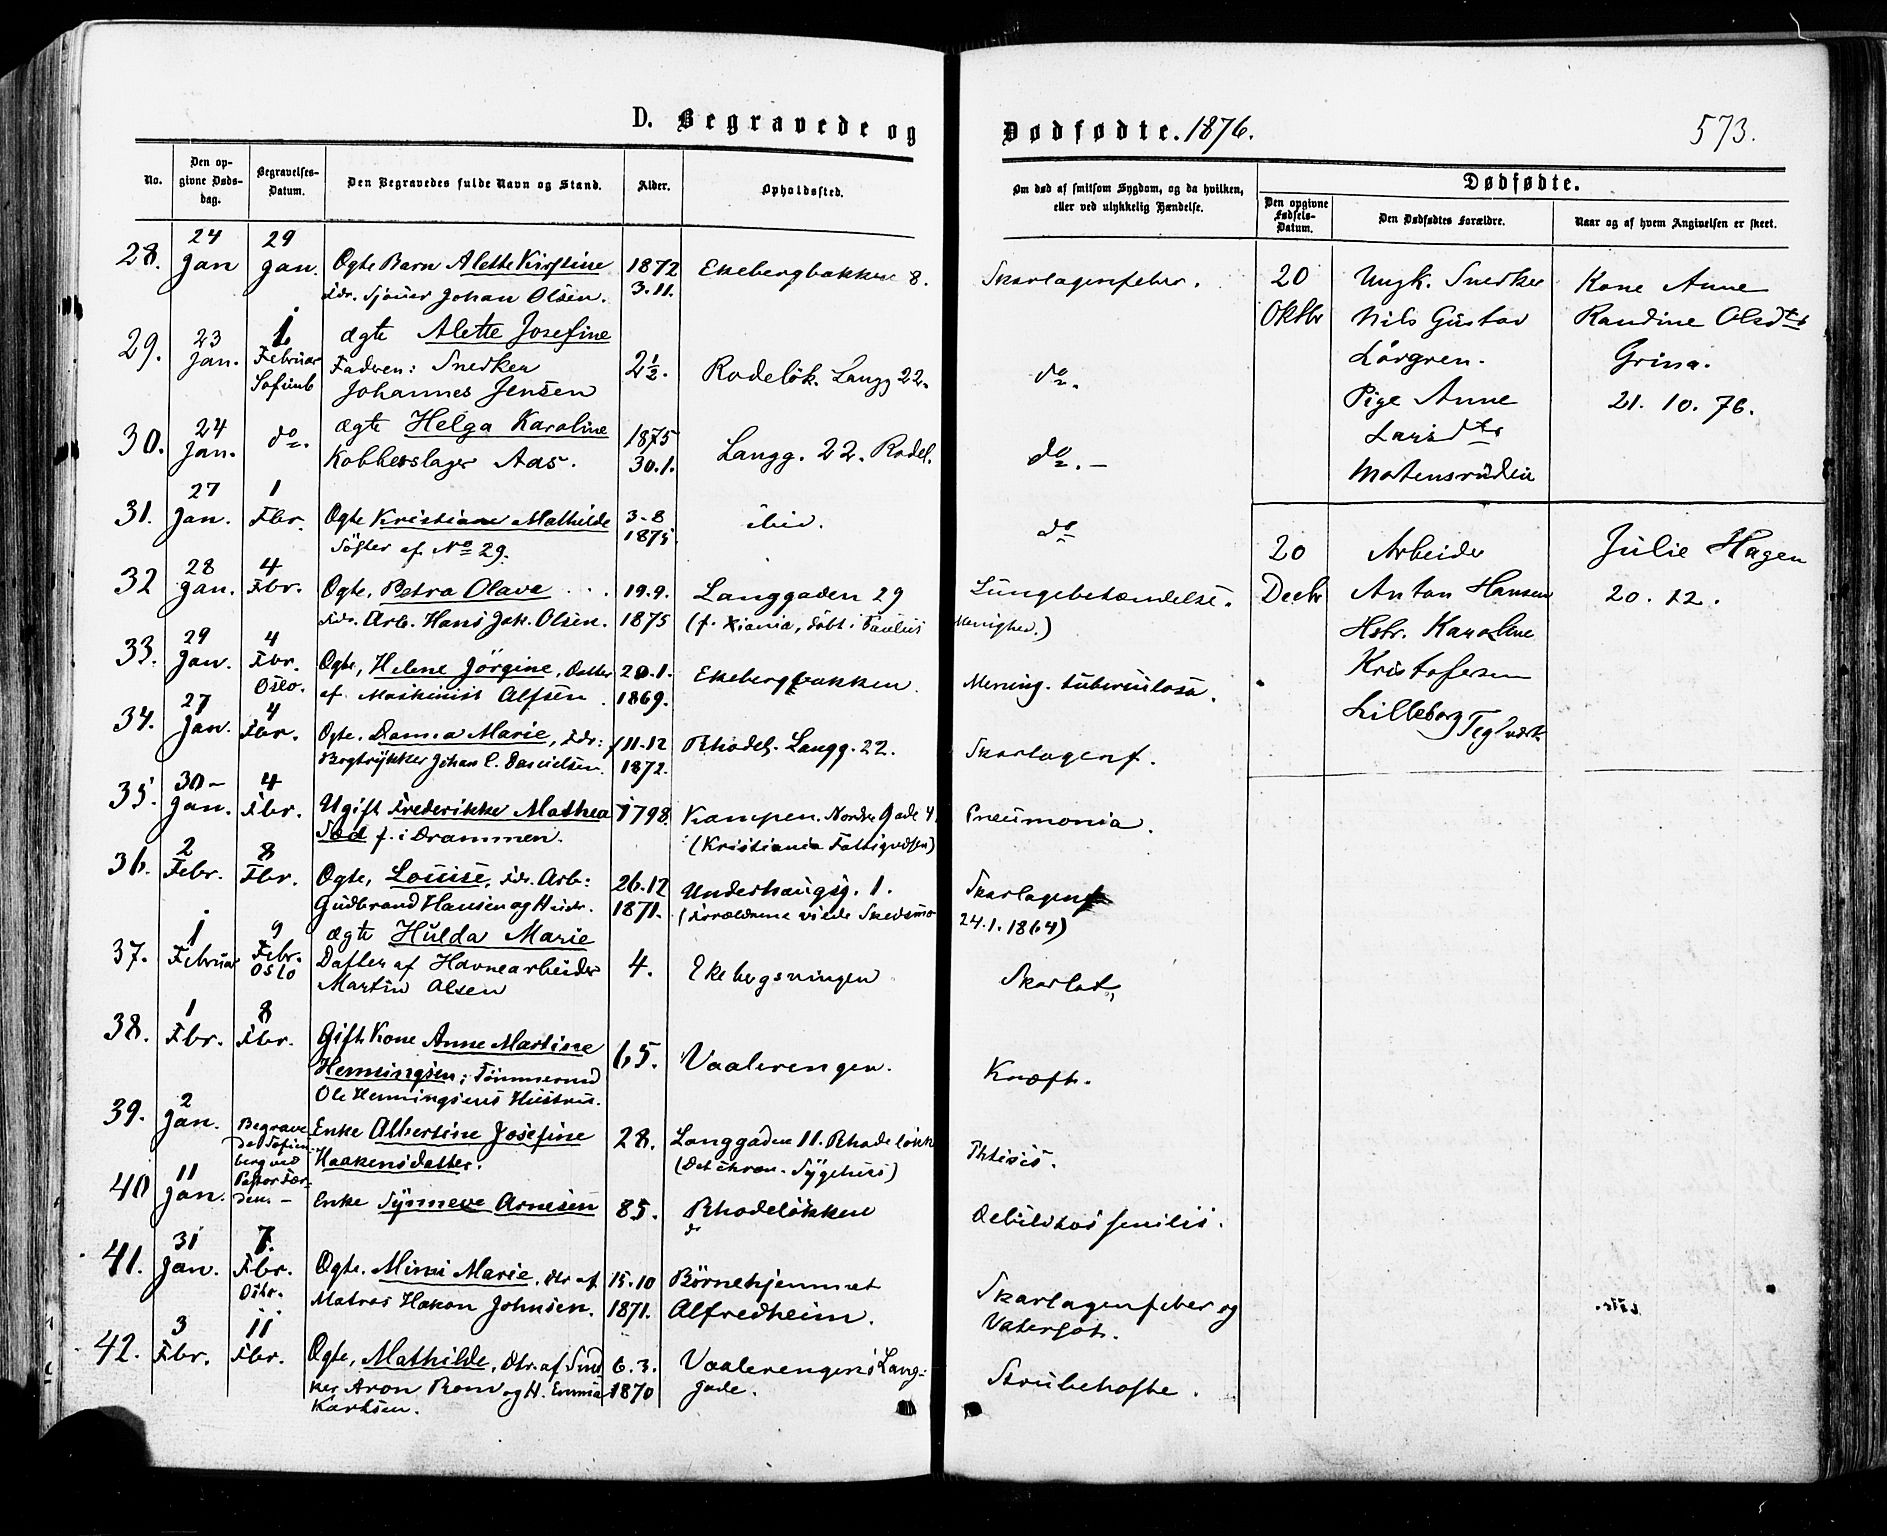 D. Begravede og Dødfødte. 1876. 573.
No.
Den opgivne Dødsdag.
Begravelses-Datum.
Den Begravedes fulde Navn og Stand.
Alder.
Opholdssted.
Om død af smitsom Sygdom, og da hvilken, eller ved ulykkelig Hændelse.
Dødfødte.
Den opgivne Fødsels-Datum.
Den Dødfødtes Forældre.
Naar og af hvem Angivelsen er skeet.
28. 24 Jan 29 Jan. Ægte Barn Alette Kirstine 1872 Ekebergbakken 8. Skarlagenfeber.
Fdr. Sjømd Johan Olsen. 3.11.
29. 23 Jan. 1. Februar Sofienb ægte Alette Josefine 2½. Rodeløk. Langg 22. do.
Faderen: Snedker
Johannes Jensen
30. 24 Jan. do. ægte Helga Karoline 1875 Langg. 22. Rodel. do. –
Kobberslager Aas. 30.1.
31. 27 Jan. 1 Fbr. Ægte Kristiane Mathilde 3-8 ibid. do
Søster af No 29. 1875
32 28 Jan. 4 Fbr. Ægte, Petra Olava 19.9. Langgaden 29 Lungebetændelse.
Fdr. Arb. Hans Joh. Olsen. 1875 (f. Xiania, døbt i Paulus Menighed.)
33. 29 Jan. 4 Fbr. Oslo. Ægte, Helene Jörgine, Datter 20.1. Ekebergbakken. Mening. tuberculosa.
af Maskinist Alfsen. 1869.
34. 27 Jan. 4 Fbr. Ægte. Danna Marie, Fdr: f 11.12 Rhodel. Langg. 22. Skarlagenf.
Bogtrykker Johan C. Danielsen. 1872.
35. 30 - Jan. 4 Fbr. Ugift Frederikke Mathea 1798. Kampen. Nordre Gade 4. Pneumonia.
f. i Drammen. (Kristiania Fattigvæsen)
36. 2 Febr. 8 Fbr. Ægte, Louise, Fdr. Arb: 26.12 Underhaugsg. 1. Skarlagenf
Gudbrand Hansen og Hustr. 1871. (Forældrene viede Skedsmo 24.1.1864)
37. 1 Februar 9 Febr. Oslo ægte Hulda Marie 4. Ekebergsvingen Skarlat,
Datter af Havnearbeider
Martin Olsen
38. 1 Fbr. 8 Fbr. Gift. Kone Anne Martine 65. Vaalerengen. Kræft.
Henningsen; Tømmermd
Ole Henningsens Hustru.
39. 2 Jan. Enke Albertine Josefine 28. Langgaden 11. Rhodeløkk Phtisis.
Haakensdatter. (Det chron. Sygehus)
Begravede Sofienberg ved Pastor Færden. –
40 11 Jan. Enke Synneve Arnesen 85. Rhodeløkken Debilitas senilis.
41. 31 Jan. 7. Fbr. Oslo. Ægte. Mimi Marie, dtr af 15.10 Børnehjemmet Skarlagenfeber og
Matros Hakon Johnsen. 1871. Alfredheim. Vatersot.
42. 3 Fbr. 11 Fbr. Ægte, Mathilde, dtr. af Sned 6.3. Vaalerengens Lang- Strubehoste.
ker Aron Rom og H. Emma 1870 gade.
Karlsen.
20 Oktbr
Ungk. Snedker
Nils Gustav
Lövgren.
Pige Anne
Larsdtr
Mortensruden
Kone Anne
Randine Olsdtr
Grina.
21. 10. 76.
20 Decbr
Arbeider
Anton Hansen
Hstr. Karoline
Kristofersen
Lilleborg Teglværk
Julie Hagen
20. 12.